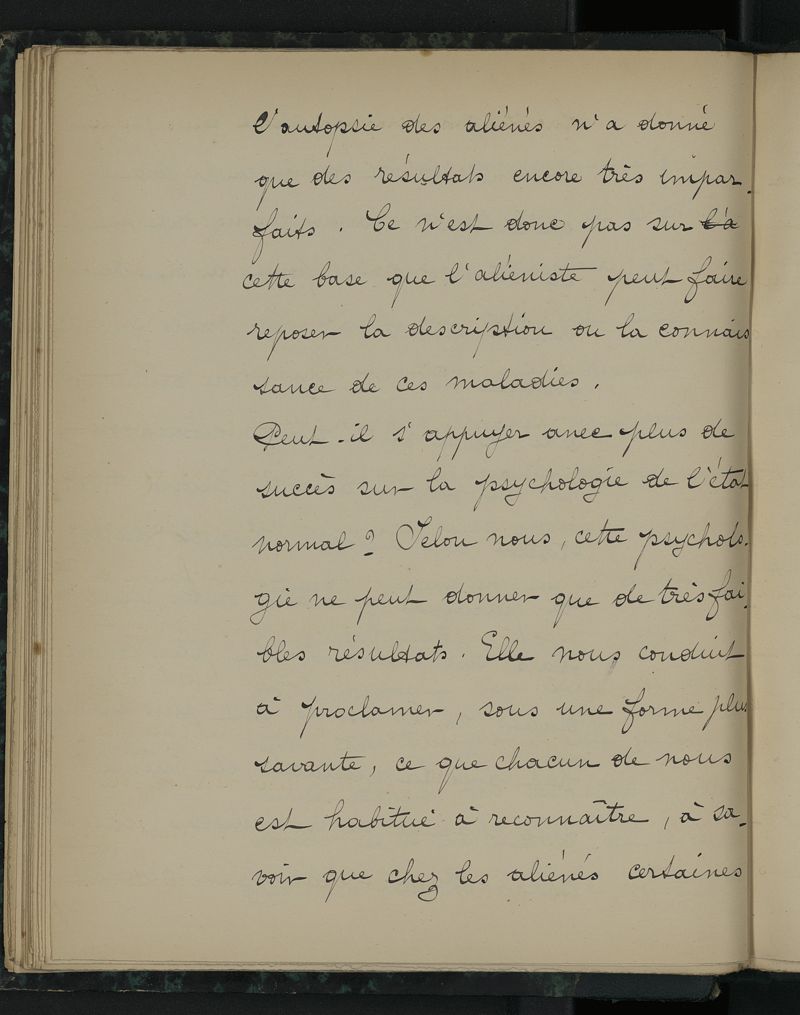 L'autopsie des aliénés n'a donné
que des résultats encore très impar-
faits. Ce n'est donc pas sur l'a
cette base que l'aliéniste peut faire
reposer la description ou la connais
sance de ces maladies.
Peut-il s'appuyer avec plus de
succès sur la psychologie de l'état
normal? Selon nous, cette psycholo-
gie ne peut donner que de très fai-
bles résultats. Elle nous conduit
à proclamer, sous une forme plus
savante, ce que chacun de nous
est habitué à reconnaître, à sa-
voir que chez les aliénés certaines